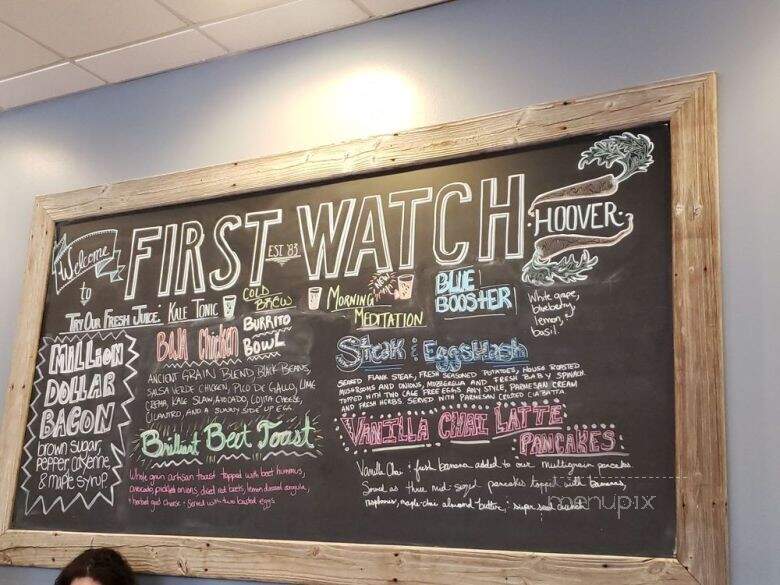 Welcome to
FIRST WATCH
EST '83
HOOVER
TRY OUR FRESH JUICE. KALE TONIC
COLD BREW
MORNING MEDITATION
NEW
BLUE BOOSTER
White grape,
blueberry,
lemon, &
basil.
MILLION
DOLLAR
BACON
brown sugar,
pepper, cayenne,
& maple syrup
BAJA Chicken
BURRITO
BOWL
ANCIENT GRAIN BLEND, BLACK BEANS,
SALSA VERDE CHICKEN, PICO DE GALLO, LIME
CREMA, KALE SLAW, AVOCADO, COJITA CHEESE,
CILANTRO, AND A SUNNY SIDE UP EGG
Brilliant Beet Toast
Whole grain artisan toast topped with beet hummus,
avocado, pickled onions, diced red beets, lemon dressed arugula,
& herbed goat cheese. Served with two basted eggs
STEAK & EGGSHASH
SEARED FLANK STEAK, FRESH SEASONED POTATOES, HOUSE ROASTED
MUSHROOMS AND ONIONS, MOZZERELLA AND FRESH BABY SPINACH
TOPPED WITH TWO CAGE FREE EGGS ANY STYLE, PARMESAN CREAM
AND FRESH HERBS. SERVED WITH PARMESAN CRUSTED CIABATTA
VANILLA CHAI LATTE
PANCAKES
Vanilla Chai & fresh banana added to our multigrain pancakes
Served as three mid-sized pancakes topped with bananas,
raspberries, maple-chai almond butter, & super seed crunch
menupix